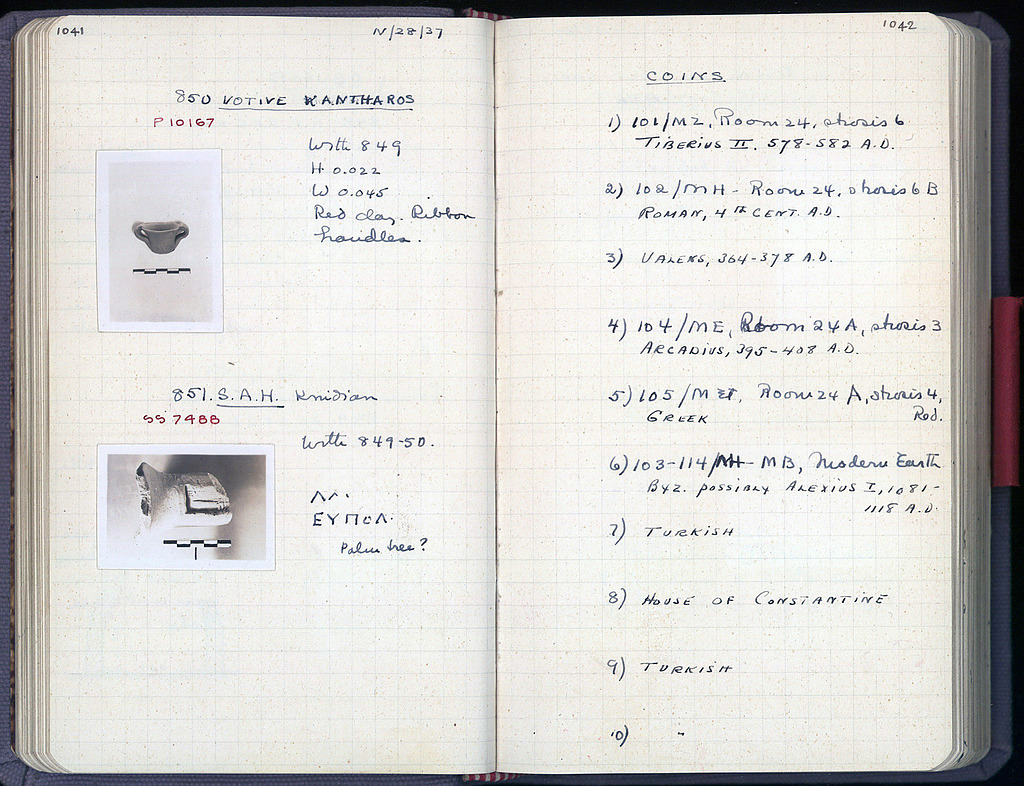 1041
IV/28/37
850 VOTIVE KANTHAROS
P 10167
With 849
H 0.022
W 0.045
Red clay. Ribbon
handles.
851. S.A.H. Knidian
SS 7488
With 849-50.
ΛΛ·
ΕΥΠΟΛ·
Palm tree?
1042
COINS
1) 101/MZ, Room 24, strosis 6
TIBERIUS II. 578-582 A.D.
2) 102/MH - Room 24, strosis 6 B
ROMAN, 4TH CENT. A.D.
3) VALENS, 364-378 A.D.
4) 104/ME, Room 24A, strosis 3
ARCADIUS, 395-408 A.D.
5) 105/M Room 24 A, strosis 4,
GREEK Red.
6) 103-114/MH - MB, Modern Earth
BYZ. POSSIBLY ALEXIUS I, 1081-
1118 A.D.
7) TURKISH
8) HOUSE OF CONSTANTINE
9) TURKISH
10) -